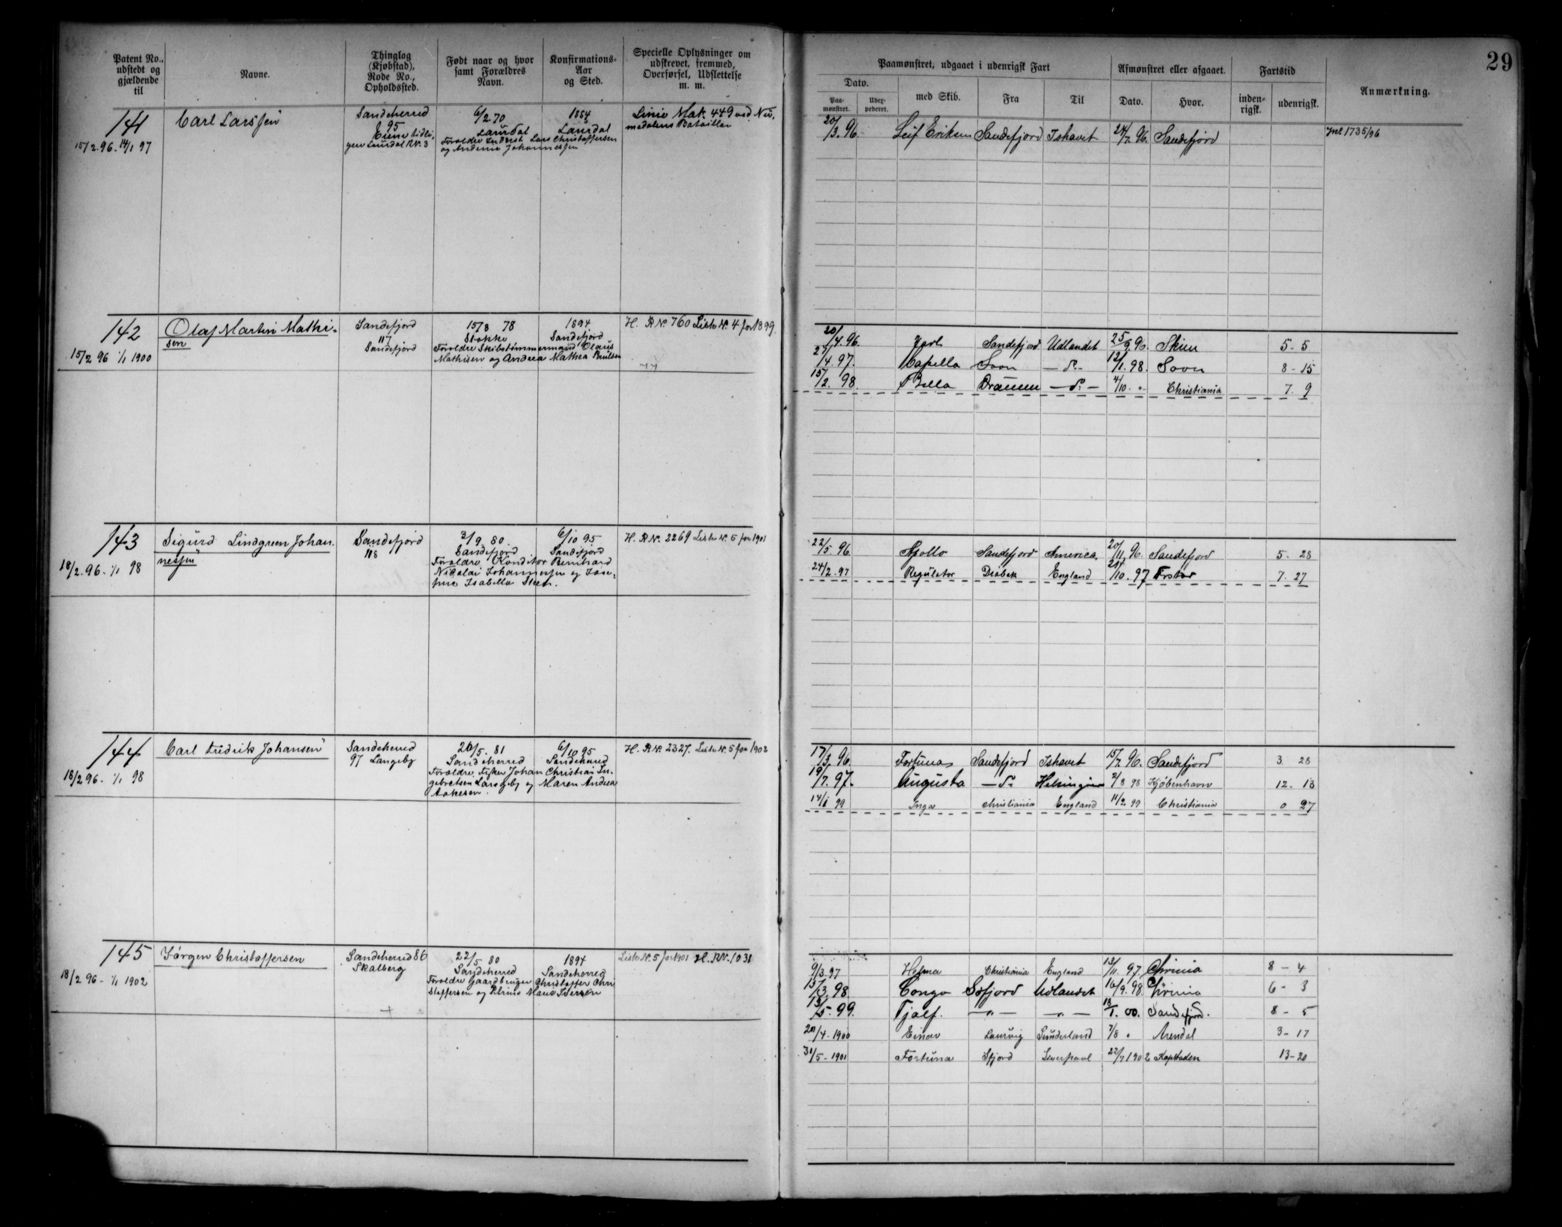 Patent No., udstedt og gjældende til
Navne.
Thinglog (Kjøbstad), Rode No., Opholdssted.
Født naar og hvor samt Forældres Navn.
Konfirmations-Aar og Sted.
Specielle Oplysninger om udskrevet, fremmed, Overførsel, Udslettelse m. m.
Paamønstret, udgaaet i udenrigsk Fart
Afmønstret eller afgaaet.
Fartstid
Anmærkning.
29
Dato.
Paa-mønstret.
med Skib.
Fra
Til
Dato.
Hvor.
inden-rigsk.
udenrigsk.
141
15/2 96. 14/1 97
Carl Larssen
Sandeherred
95
6/2 70
Laurdal
1884
Laurdal
Linie Mak. 449 ved Ned
20/3. 96.
Leif Eriksen Sandefjord Ishavet 24/7. 96. Sandefjord
Jnl 1735/96
142
15/2 96 1/1 1900
Olaf Martin Mathi-
sen
Sandefjord
117
Sandefjord
15/8 78
Stokke
Forældre Skibstømmermand Claus
Mathisen og Andrea Mathea Paulsen
1894
Sandefjord
H. R.No. 760 Liste No. 4 for 1899.
20/4. 96. Sandefjord Udlandet 25/9 96. Skien 5 - 5
27/4. 97. Capella 12/1. 98. 8 - 15
15/2. 98. Bella Drammen — do — 4/10. " Christiania 7. 9
143
18/2. 96. 1/1 98
Sigurd Lindgreen Johan-
nessen
Sandefjord
118
2/9. 80.
Sandefjord
Forældre Konditor Bernhard
Nikolai Johannessen og Jose-
phine Isabella Steen.
6/10 95
Sandefjord
H. R.No. 2269 Liste No. 5 for 1901
22/5. 96. Apollo Sandefjord America. 20/11. 96. Sandefjord 5 - 28
24/2. 97 Regulator England /10. 97 7. 27
144
18/2 96. 1/1 98
Carl Fredrik Johansen
Sandeherred
97 Langeby
26/5. 81
Sandeherred
6/10 95
Sandeherred
H. R.No. 2327. Liste No. 5 for 1902
17/3. 96. Fortuna Sandefjord Ishavet 15/7. 96. Sandefjord 3. 28
19/7. 97. Augusta — do Helsingør 2/8 98 Kjøbenhavn 12 - 13
14/1 99 Inga Christiania England 11/2 99 Christiania 0 27
145
18/2 96. 1/1 1902
Jørgen Christoffersen
Sandeherred 86
Skalberg
22/5. 80
Sandeherred
Forældre Gaardbruger Christoffer Chri
stoffersen og
1894
Sandeherred
Liste No. 5 for 1901 H. R.No. 1031
9/3. 97 Helma Christiania England 13/11. 97. Chrania 8 - 4
15/3. 98. Congo Sefjord Udlandet 16/9. 98. 6 - 3
13/5. 99. Tjalf. — " — — " — 18/1. 00. Sandefjord. 8 - 5
20/4. 1900 Einar Laurvig Sunderland 7/8 " Arendal 3 - 17
31/5 - 1901 Fortuna Sfjord Leverpool 22/7 1902 Kapstaden 13 - 20